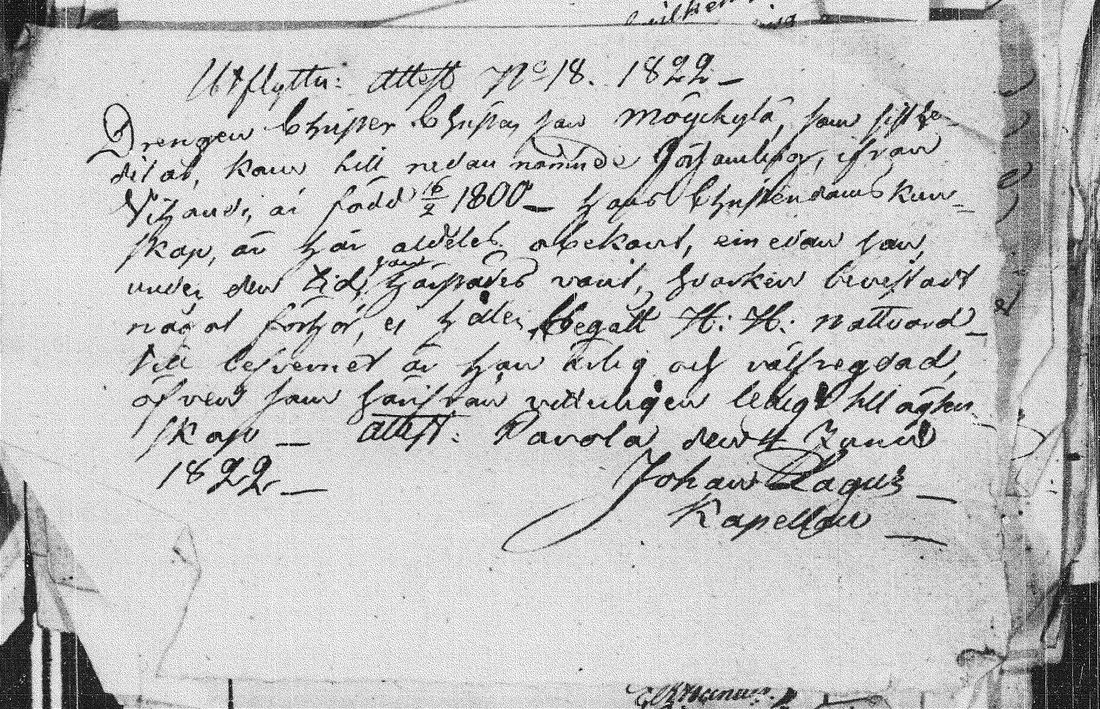 Utflyttn: Attest No 18. 1822 –
Drengen Christer Christers son Möyckylä, som sist be-
ditat, kom till nedan nämnde Församling, ifrån
Vihandi, är född 16/2 1800 – Hans Christendoms kun-
skap, är här aldeles obekant, emedan han,
under den tid, han härstädes varit, hvarken bevistat
något förhör, ej heller begått H: H: nattvard –
till lefvernet är han ärlig och välfregdad,
äfven som härifrån ledig till ägten-
skap – Attest: Pavola den 4 Junii
1822. –
Johan Lagus –
Kapellan –